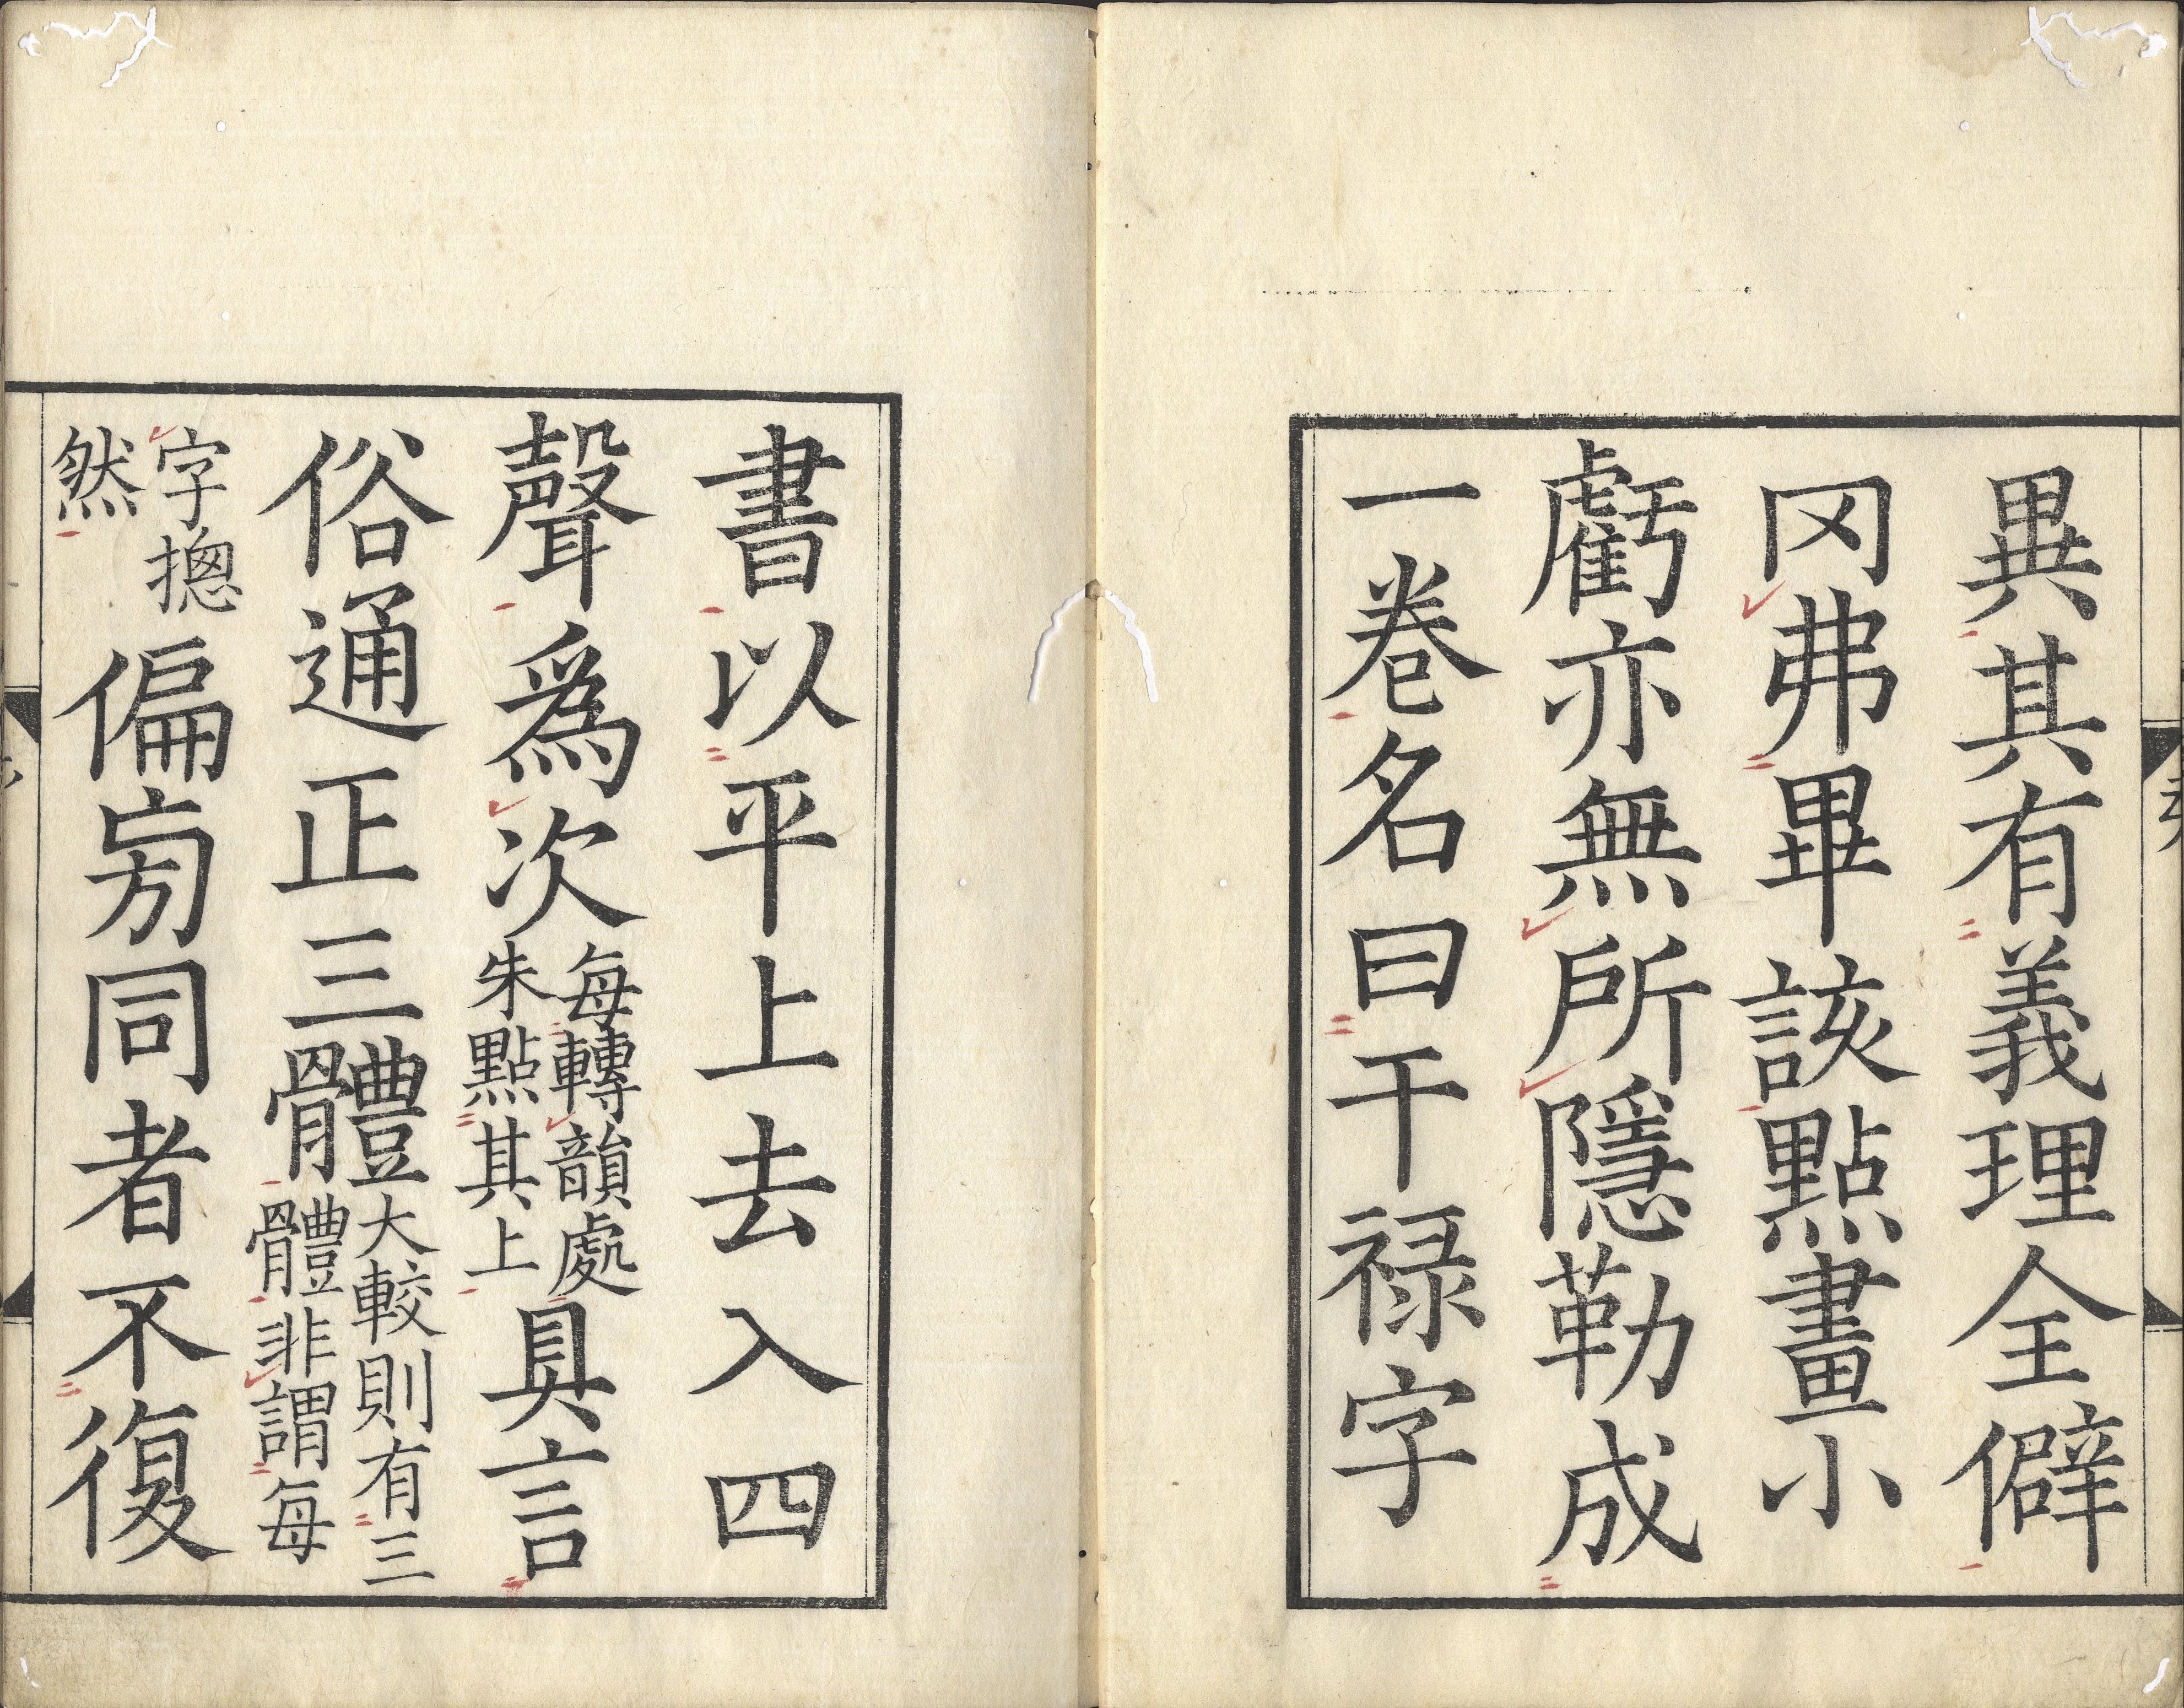 異其有義理全僻
罔弗畢該點畫小
虧亦無所隱勒成
一卷名曰干禄字
書以平上去入四
聲爲次每轉韻處朱點其上具言
俗通正三體大較則有三體非謂每
字揔然偏旁同者不復